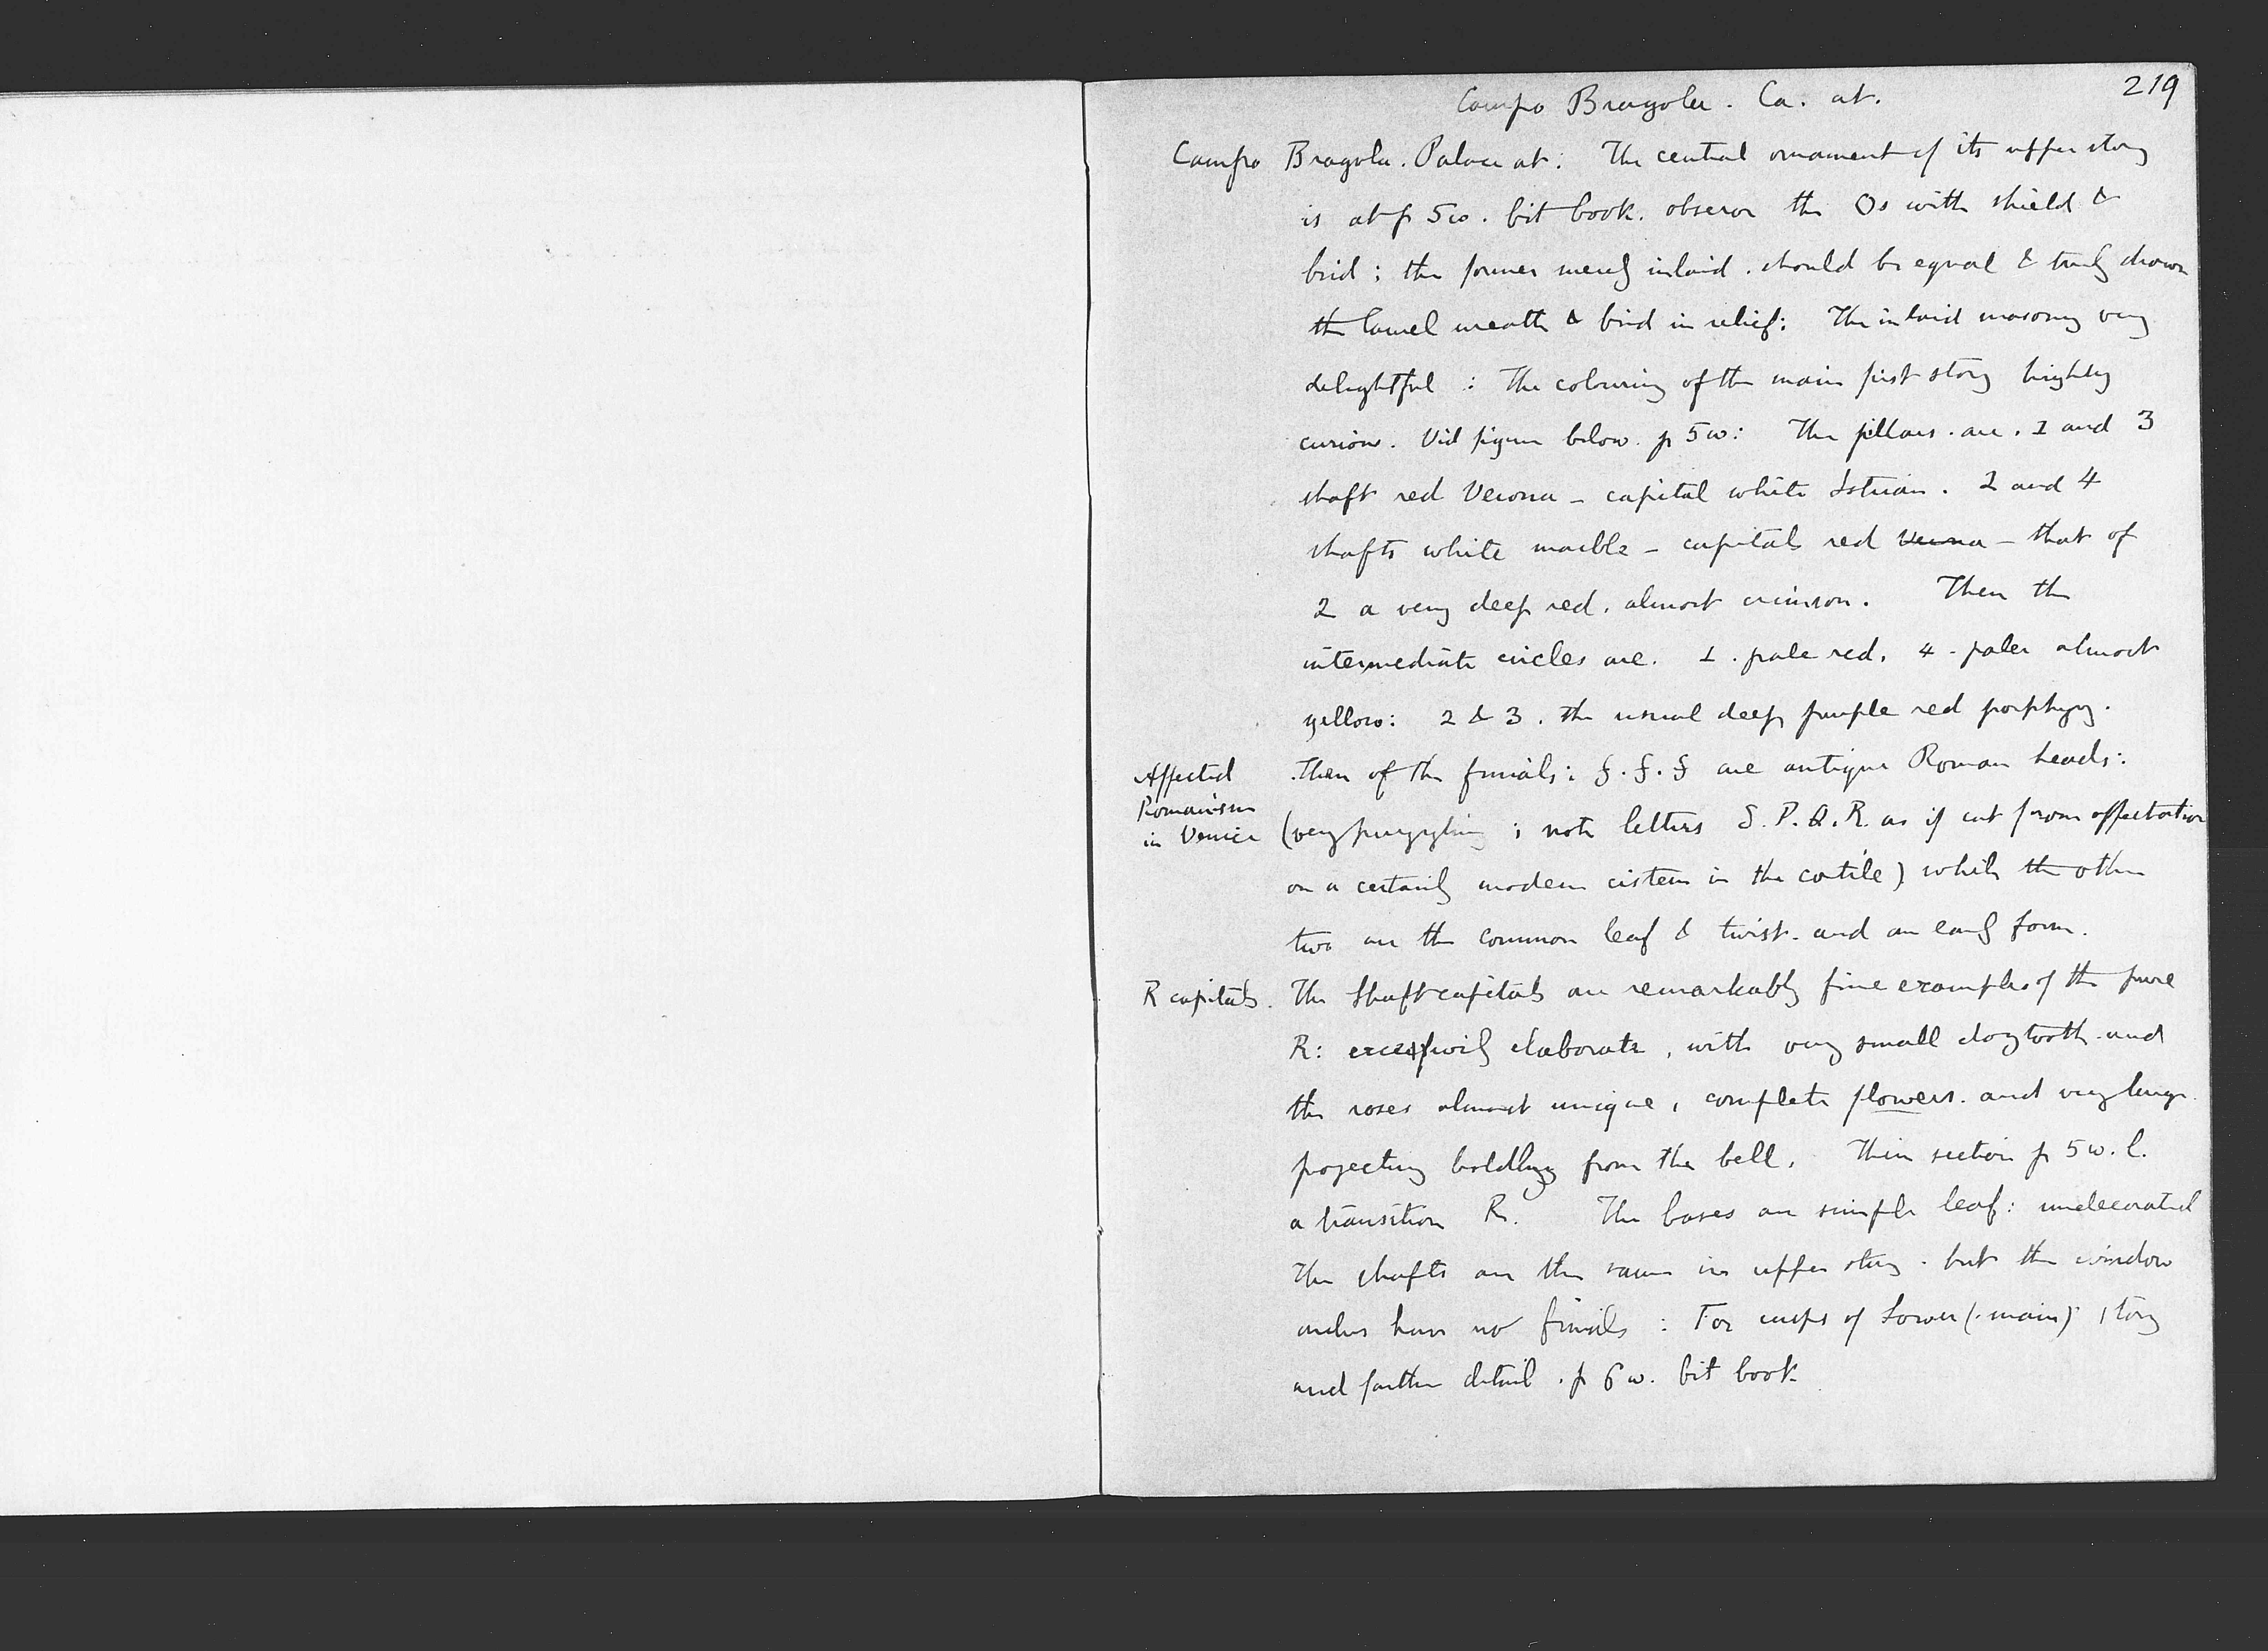 219
Campo Bragola. Ca. at.
Campo Bragola. Palace at: The central ornament of its upper story
is at p 5w. bit book. observe the Os with shield &
bird; the former merely inlaid. should be equal & truly drawn
the laurel wreath & bird in relief: The inlaid masonry very
delightful: The colouring of the main first story highly
curious. Vid figure below. p 5w: The pillars. are. 1 and 3
shaft red Verona - capital white Istrian. 2 and 4
shafts white marble - capitals red Verona - that of
2 a very deep red, almost crimson. Then the
intermediate circles are. 1. pale red. 4 - paler almost
yellow: 2 & 3. the usual deep purple red porphyry.
Affected
Romanism
in Venice
Then of the finials: §. §. § are antique Roman heads:
(very puzzling; note letters S. P. Q. R. as if cut from affectation
on a certainly modern cistern in the cortile) while the other
two are the common leaf & twist. and an early form.
R capitals.
The Shaft capitals are remarkably fine examples of the pure
R: excessively elaborate, with very small dogtooth. and
the roses almost unique, complete flowers. and very large
projecting boldly from the bell. Their section p 5w. l.
a transition R. The bases are simple leaf: undecorated
The shafts are the same in upper story. but the window
arches have no finials: For cusps of Lower (main) story
and further detail. p 6w. bit book